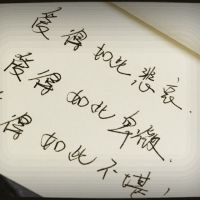 爱得如此悲哀.
爱得如此卑微.
得如此不堪!